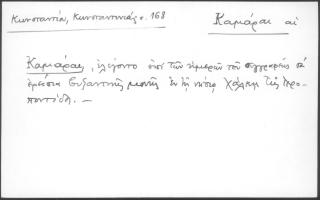 Κωνσταντίν, Κωνσταντινιάς σ. 168
Καμάραι αἱ
Καμάραι, ἐλέγοντο ἐπὶ τῶν ἡμερῶν τοῦ συγγραφέως τὰ
ἐρείπια βυζαντινῆς μονῆς ἐν τῇ νήσῳ Χάλκῃ τῆς Προ-
ποντίδος. —